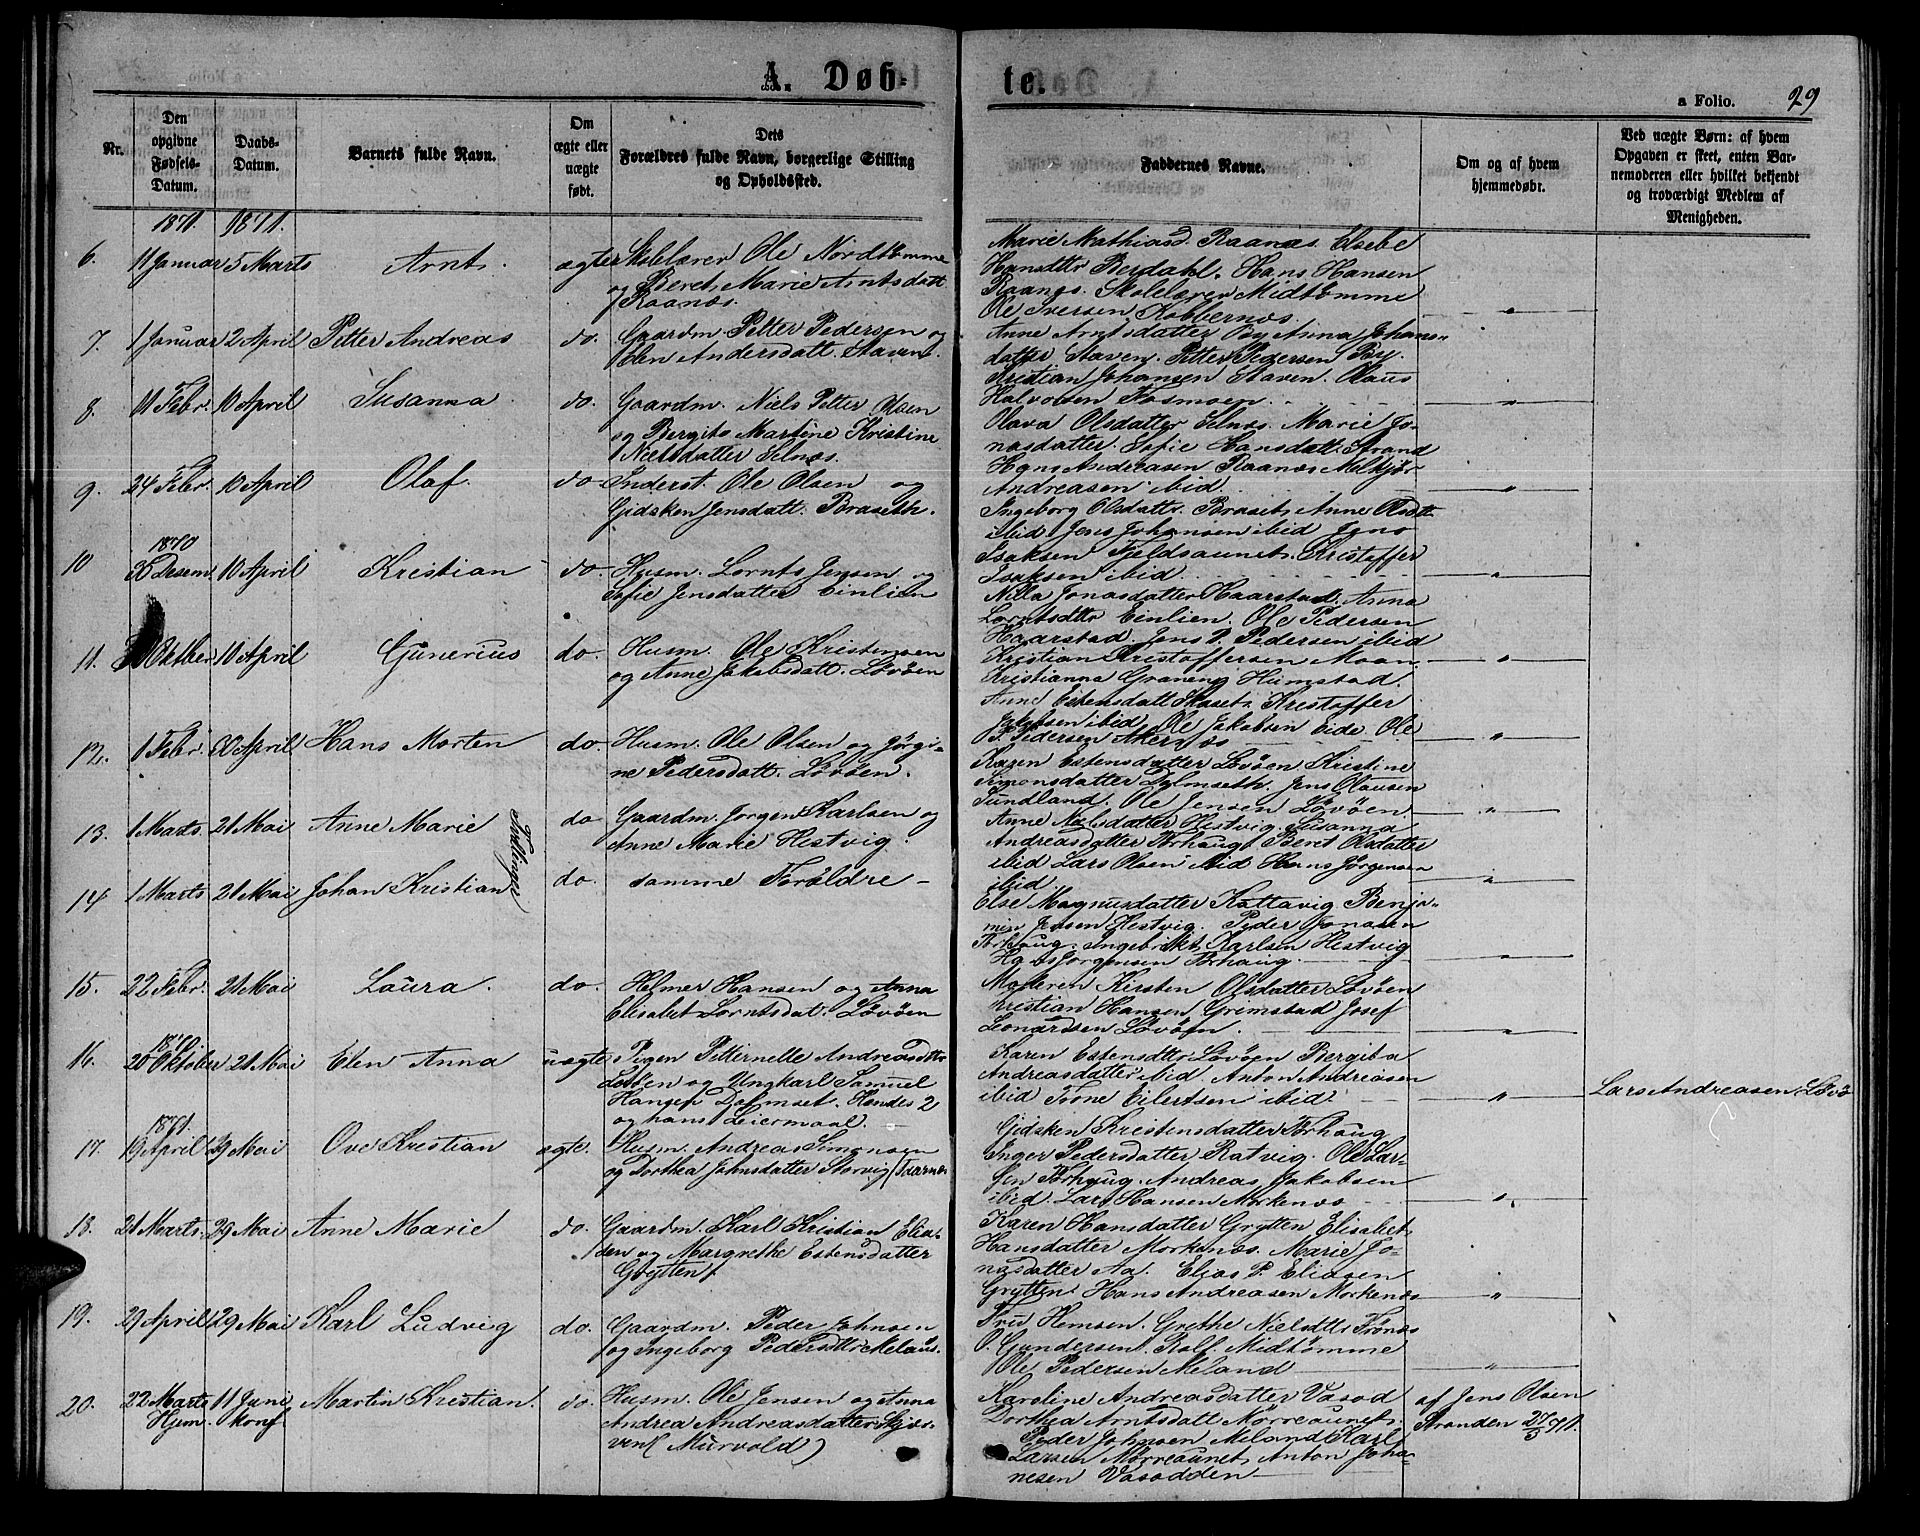 A. Døbte.
a Folio. 29
Nr.
Den opgivne Fødsels-Datum.
Daabs-Datum.
Barnets fulde Navn.
Om ægte eller uægte født.
Dets Forældres fulde Navn, borgerlige Stilling og Opholdssted.
Faddernes Navne.
Om og af hvem hjemmedøbt.
Ved uægte Børn: af hvem Opgaven er skeet, enten Barnemoderen eller hvilket bekjendt og troværdigt Medlem af Menigheden.
1871. 1871.
6. 11 Januar 5 Marts Arnt. ægte Skolelærer Ole Nordtømme
og Beret Marie Arntsdatt
Raanæs.
Marie Mathiasd. Raanæs. Elsebe
Hansdttr Berdahl. Hans Hansen
Raanæs. Skolelærer Midtømme
Ole Iversen Kobbernæs. "
7. 1 Januar 2 April Petter Andreas do. Gaardm. Petter Pedersen og
Elen Andersdatt. Staven.
Anne Arntsdatter By. Anna Johans-
datter Staven. Petter Pedersen By.
Kristian Johansen Staven. Olaus
Halvorsen Fosmoen. "
8. 11 Febr. 10 April Susanna do. Gaardm. Niels Petter Olsen
og Bergite Martine Kristine
Nielsdatter Selnæs.
Olava Olsdatter Selnæs. Marie Jo-
nasdatter. Sofie Hansdatt. Strand
Hans Andreasen Raanæs. Melkjør
Andreasen ibid. "
9. 24 Febr. 10 April Olaf. do Inderst. Ole Olsen og
Gidsken Jensdatt. Braseth.
Ingeborg Olsdattr. Braset, Anne Olsdtt
ibid Jens Johansen ibid Jens
Isaksen Fjeldsaunet. Kristoffer
Isaksen ibid. "
10 1870 Desem 10 April Kristian do. Husm. Lornts Jensen og
Sofie Jensdatter Einlien
Nilla Jonasdatter Haarstad. Anna
Lorntsdttr Einlien. Ole Pedersen
Haarstad. Jens P. Pedersen ibid
11. Oktber 10 April Gunerius do. Husm. Ole Kristensen
og Anne Jakobsdatt. Løvøen
Kristian Kristoffersen Moan "
Kristianna Graneng Humstad.
Anne Estensdatt Skaset. Kristoffer
Jakobsen ibid. Ole Jakobsen Eide. Ole
P. Pedersen Akernæs "
12. 1 Febr. April Hans Morten do. Husm. Ole Olsen og Jørgi-
ne Pedersdatt. Løvøen.
Karen Estensdatter Løvøen Kristine
Simonsdatter Dalmseth. Jens Olausen
Sundland. Ole Jensen Løvøen. "
13. 1 Marts. 21 Mai Anne Marie do Gaardm. Jørgen Karlsen og
Anne Marie Hestvig.
Tvillinger
Anne Nielsdatter Hestvig. Susanna
Andreasdatter Torhaug. Beret Olsdatter
ibid Lars Olsen ibid Hans Jørgensen
ibid. "
14 1 Marts 21 Mai Johan Kristian do. samme Forældre -
Else Magnusdatter Kattavig Benja-
min Jensen Hestvig. Peder Jonasen
Torhaug. Ingebrikt Karlsen Hestvig
Hans Jørgensen Torhaug. "
15. 22 Febr. 21 Mai Laura. do. Helmer Hansen og Anna
Elisabet Lorntsdat. Løvøen
Moderen Kirsten Olsdatter Løvøen
Kristian Hansen Gremstad Josef
Leonardsen Løvøen. "
16. 1870. 20 Oktober 21 Mai Elen Anna uægte Pigen Petternelle Andreasdttr
Løvøen og Ungkarl Samuel
Hansen Dalmset. Hendes 2
og hans Leiermaal.
Karen Estensdttr Løvøen Bergita
Andreasdatter ibid. Anton Andreasen
ibid Trone Eilertsen ibid. " Lars Andreasen Løvø
17. 1871. 19 April 29 Mai Ove Kristian ægte. Husm. Andreas Simonsen
og Dorthea Johnsdatter Storvig
Gidsken Kristensdatter Torhaug
Inger Pedersdatter Ratvig. Ole Lar-
sen Torhaug. Andreas Jakobsen
ibid. Lars Hansen Morkenæs "
18. 21 Marts. 29 Mai Anne Marie do. Gaardm. Karl Kristian Elia-
sen og Margrethe Estensdatter
Grytten
Karen Hansdatter Grytten Elisabet
Hansdatter Morkenæs. Marie Jo-
nasdatter Aa. Elias P. Eliasen
Grytten Hans Andreasen Morkenæs "
19. 29 April 29 Mai Karl Ludvig do. Gaardm. Peder Johnsen
og Ingeborg Pedersdttr Melan.
Fru Hemsen. Grethe Nielsdttr Frønæs
O. Gundersen. Rolf Midtømme
Ole Pedersen Meland "
20. 22 Marts 11 Juni Martin Kristian. do. Husm. Ole Jensen og Anna
Hjem. konf. Andrea Andreasdatter Skjer-
ven (Murvold)
Karoline Andreasdatter Vasod
Dorthea Arntsdatt Mørreaunet.
Peder Johnsen Meland Karl
Larsen Mørreaunet, Anton Joha-
nesen Vasodden
af Jens Olsen
Stranden 27/3 71.